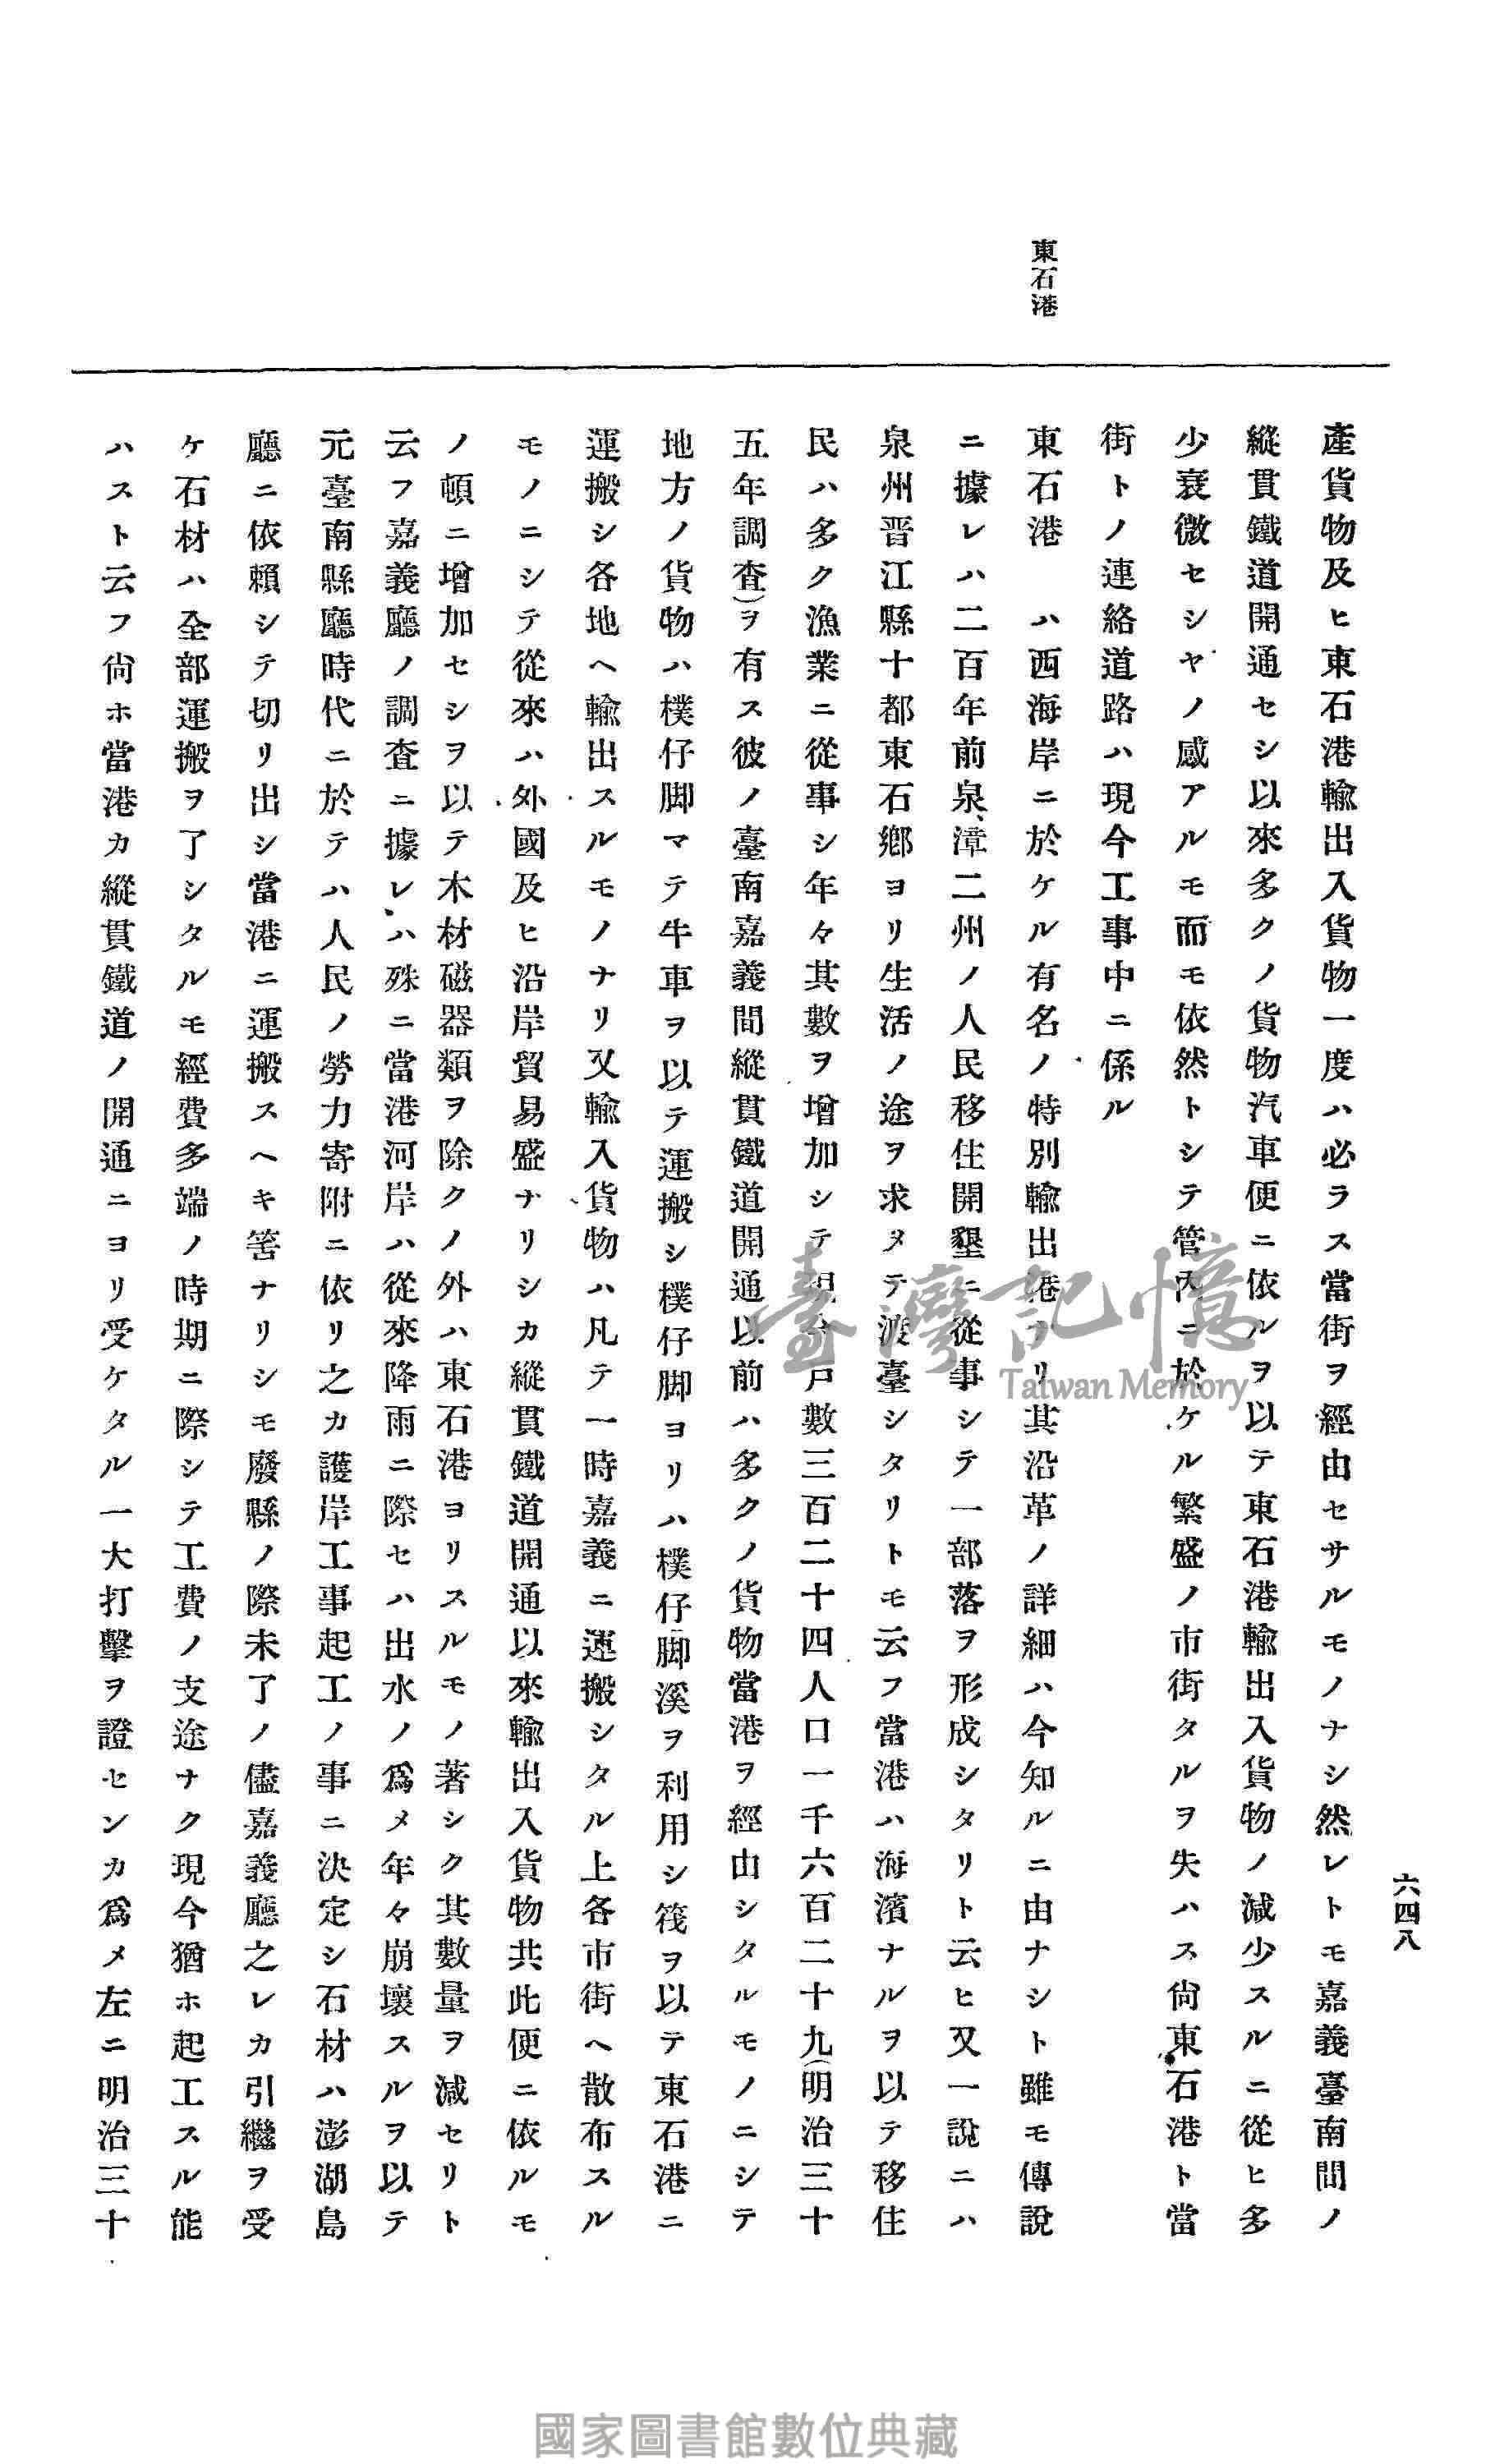 六四八
東石港
產貨物及ヒ東石港輸出入貨物一度ハ必ラス當街ヲ經由セサルモノナシ然レトモ嘉義臺南間ノ
縱貫鐵道開通セシ以來多クノ貨物汽車便ニ依ルヲ以テ東石港輸出入貨物ノ減少スルニ從ヒ多
少衰微セシヤノ感アルモ而モ依然トシテ管內ニ於ケル繁盛ノ市街タルヲ失ハス尙東石港ト當
街トノ連絡道路ハ現今工事中ニ係ル
東石港 ハ西海岸ニ於ケル有名ノ特別輸出港ナリ其沿革ノ詳細ハ今知ルニ由ナシト雖モ傳說
ニ據レハ二百年前泉、漳二州ノ人民移住開墾ニ從事シテ一部落ヲ形成シタリト云ヒ又一說ニハ
泉州晋江縣十都東石鄕ヨリ生活ノ途ヲ求メテ渡臺シタリトモ云フ當港ハ海濱ナルヲ以テ移住
民ハ多ク漁業ニ從事シ年々其數ヲ增加シテ現今戶數三百二十四人口一千六百二十九(明治三十
五年調查)ヲ有ス彼ノ臺南嘉義間縱貫鐵道開通以前ハ多クノ貨物當港ヲ經由シタルモノニシテ
地方ノ貨物ハ樸仔脚マテ牛車ヲ以テ運搬シ樸仔脚ヨリハ樸仔脚溪ヲ利用シ筏ヲ以テ東石港ニ
運搬シ各地ヘ輸出スルモノナリ又輸入貨物ハ凡テ一時嘉義ニ運搬シタル上各市街ヘ散布スル
モノニシテ從來ハ外國及ヒ沿岸貿易盛ナリシカ縱貫鐵道開通以來輸出入貨物共此便ニ依ルモ
ノ頓ニ增加セシヲ以テ木材磁器類ヲ除クノ外ハ東石港ヨリスルモノ著シク其數量ヲ減セリト
云フ嘉義廳ノ調査ニ據レハ殊ニ當港河岸ハ從來降雨ニ際セハ出水ノ爲メ年々崩壞スルヲ以テ
元臺南縣廳時代ニ於テハ人民ノ勞力寄附ニ依リ之カ護岸工事起工ノ事ニ決定シ石材ハ澎湖島
廳ニ依賴シテ切リ出シ當港ニ運搬スヘキ筈ナリシモ廢縣ノ際未了ノ儘嘉義廳之レカ引繼ヲ受
ケ石材ハ全部運搬ヲ了シタルモ經費多端ノ時期ニ際シテ工費ノ支途ナク現今猶ホ起工スル能
ハスト云フ尙ホ當港カ縱貫鐵道ノ開通ニヨリ受ケタル一大打擊ヲ證センカ爲メ左ニ明治三十
臺灣記憶
Taiwan Memory
國家圖書館數位典藏